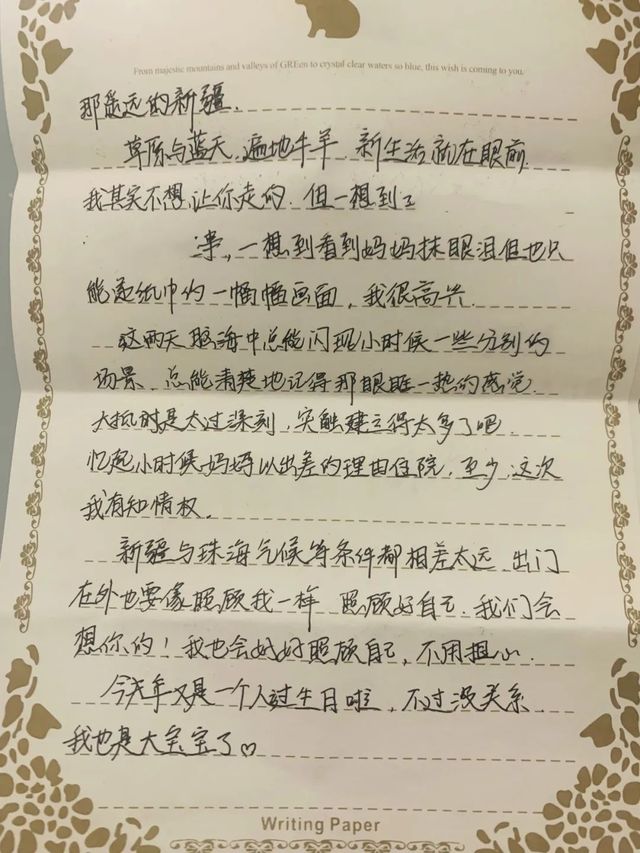 From majestic mountains and valleys of GREen to crystal clear waters so blue, this wish is coming to you.
那遥远的新疆.
草原与蓝天.遍地牛羊 新生活就在眼前.
我其实不想让你走的.但一想到
事,一想到看到妈妈抹眼泪但也只
能递纸巾的一幅幅画面,我很高兴.
这两天脑海中总能闪现小时候一些分别的
场景、总能清楚地记得那眼眶一热的感觉.
大抵时是太过深刻,突触建立得太多了吧.
忆起小时候妈妈以出差的理由住院,至少,这次
我有知情权.
新疆与珠海气候等条件都相差太远 出门
在外也要像照顾我一样 照顾好自己.我们会
想你的!我也会好好照顾自己,不用担心.
今年又是一个人过生日啦,不过没关系.
我也是大宝宝了♡
Writing Paper